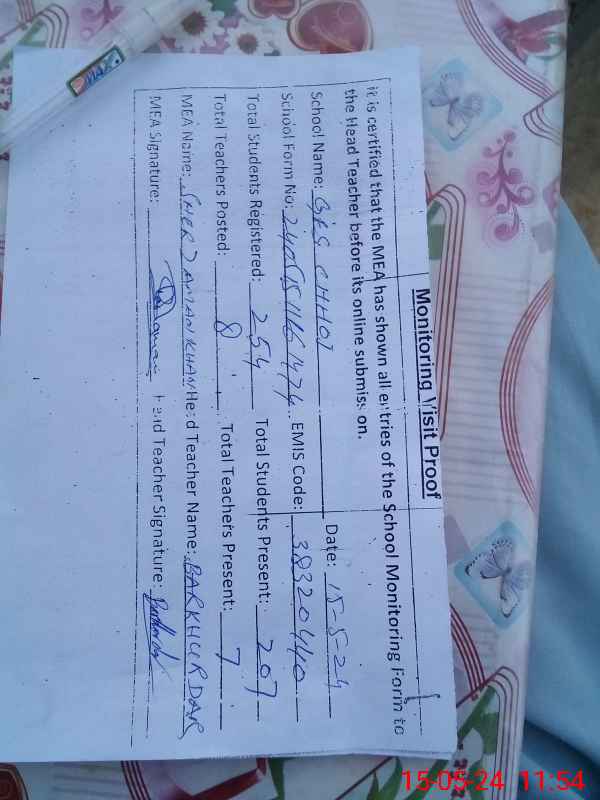 Monitoring Visit Proof
it is certified that the MEA has shown all entries of the School Monitoring Form to
the Head Teacher before its online submission.
School Name: GPS CHHOI Date: 15-5-24
School Form No: EMIS Code: 38320440
Total Students Registered: 254 Total Students Present: 207
Total Teachers Posted: 8 Total Teachers Present: 7
MEA Name: SHER ZAMAN KHAN Head Teacher Name: BARKHURDAR
MEA Signature: Head Teacher Signature:
MAX
15-05-24 11:54